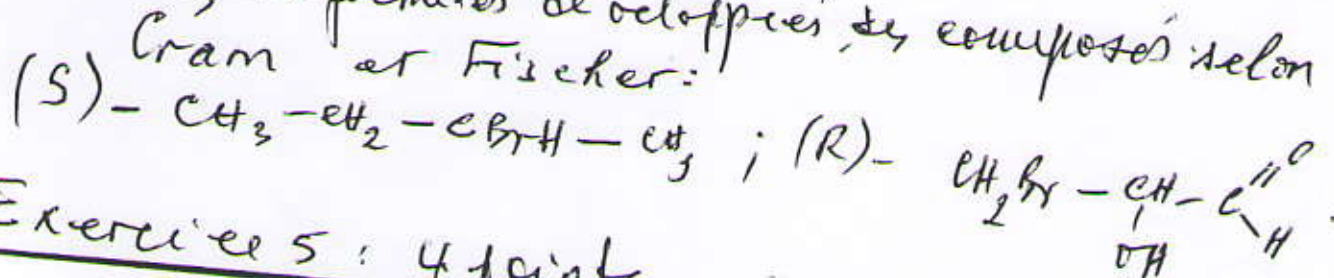 développées des composés selon
Cram et Fischer:
(S)- CH3-CH2-CBrH-CH3 ; (R)- CH2Br-CH-C=O
OH H
Exercice 5 : 4 points